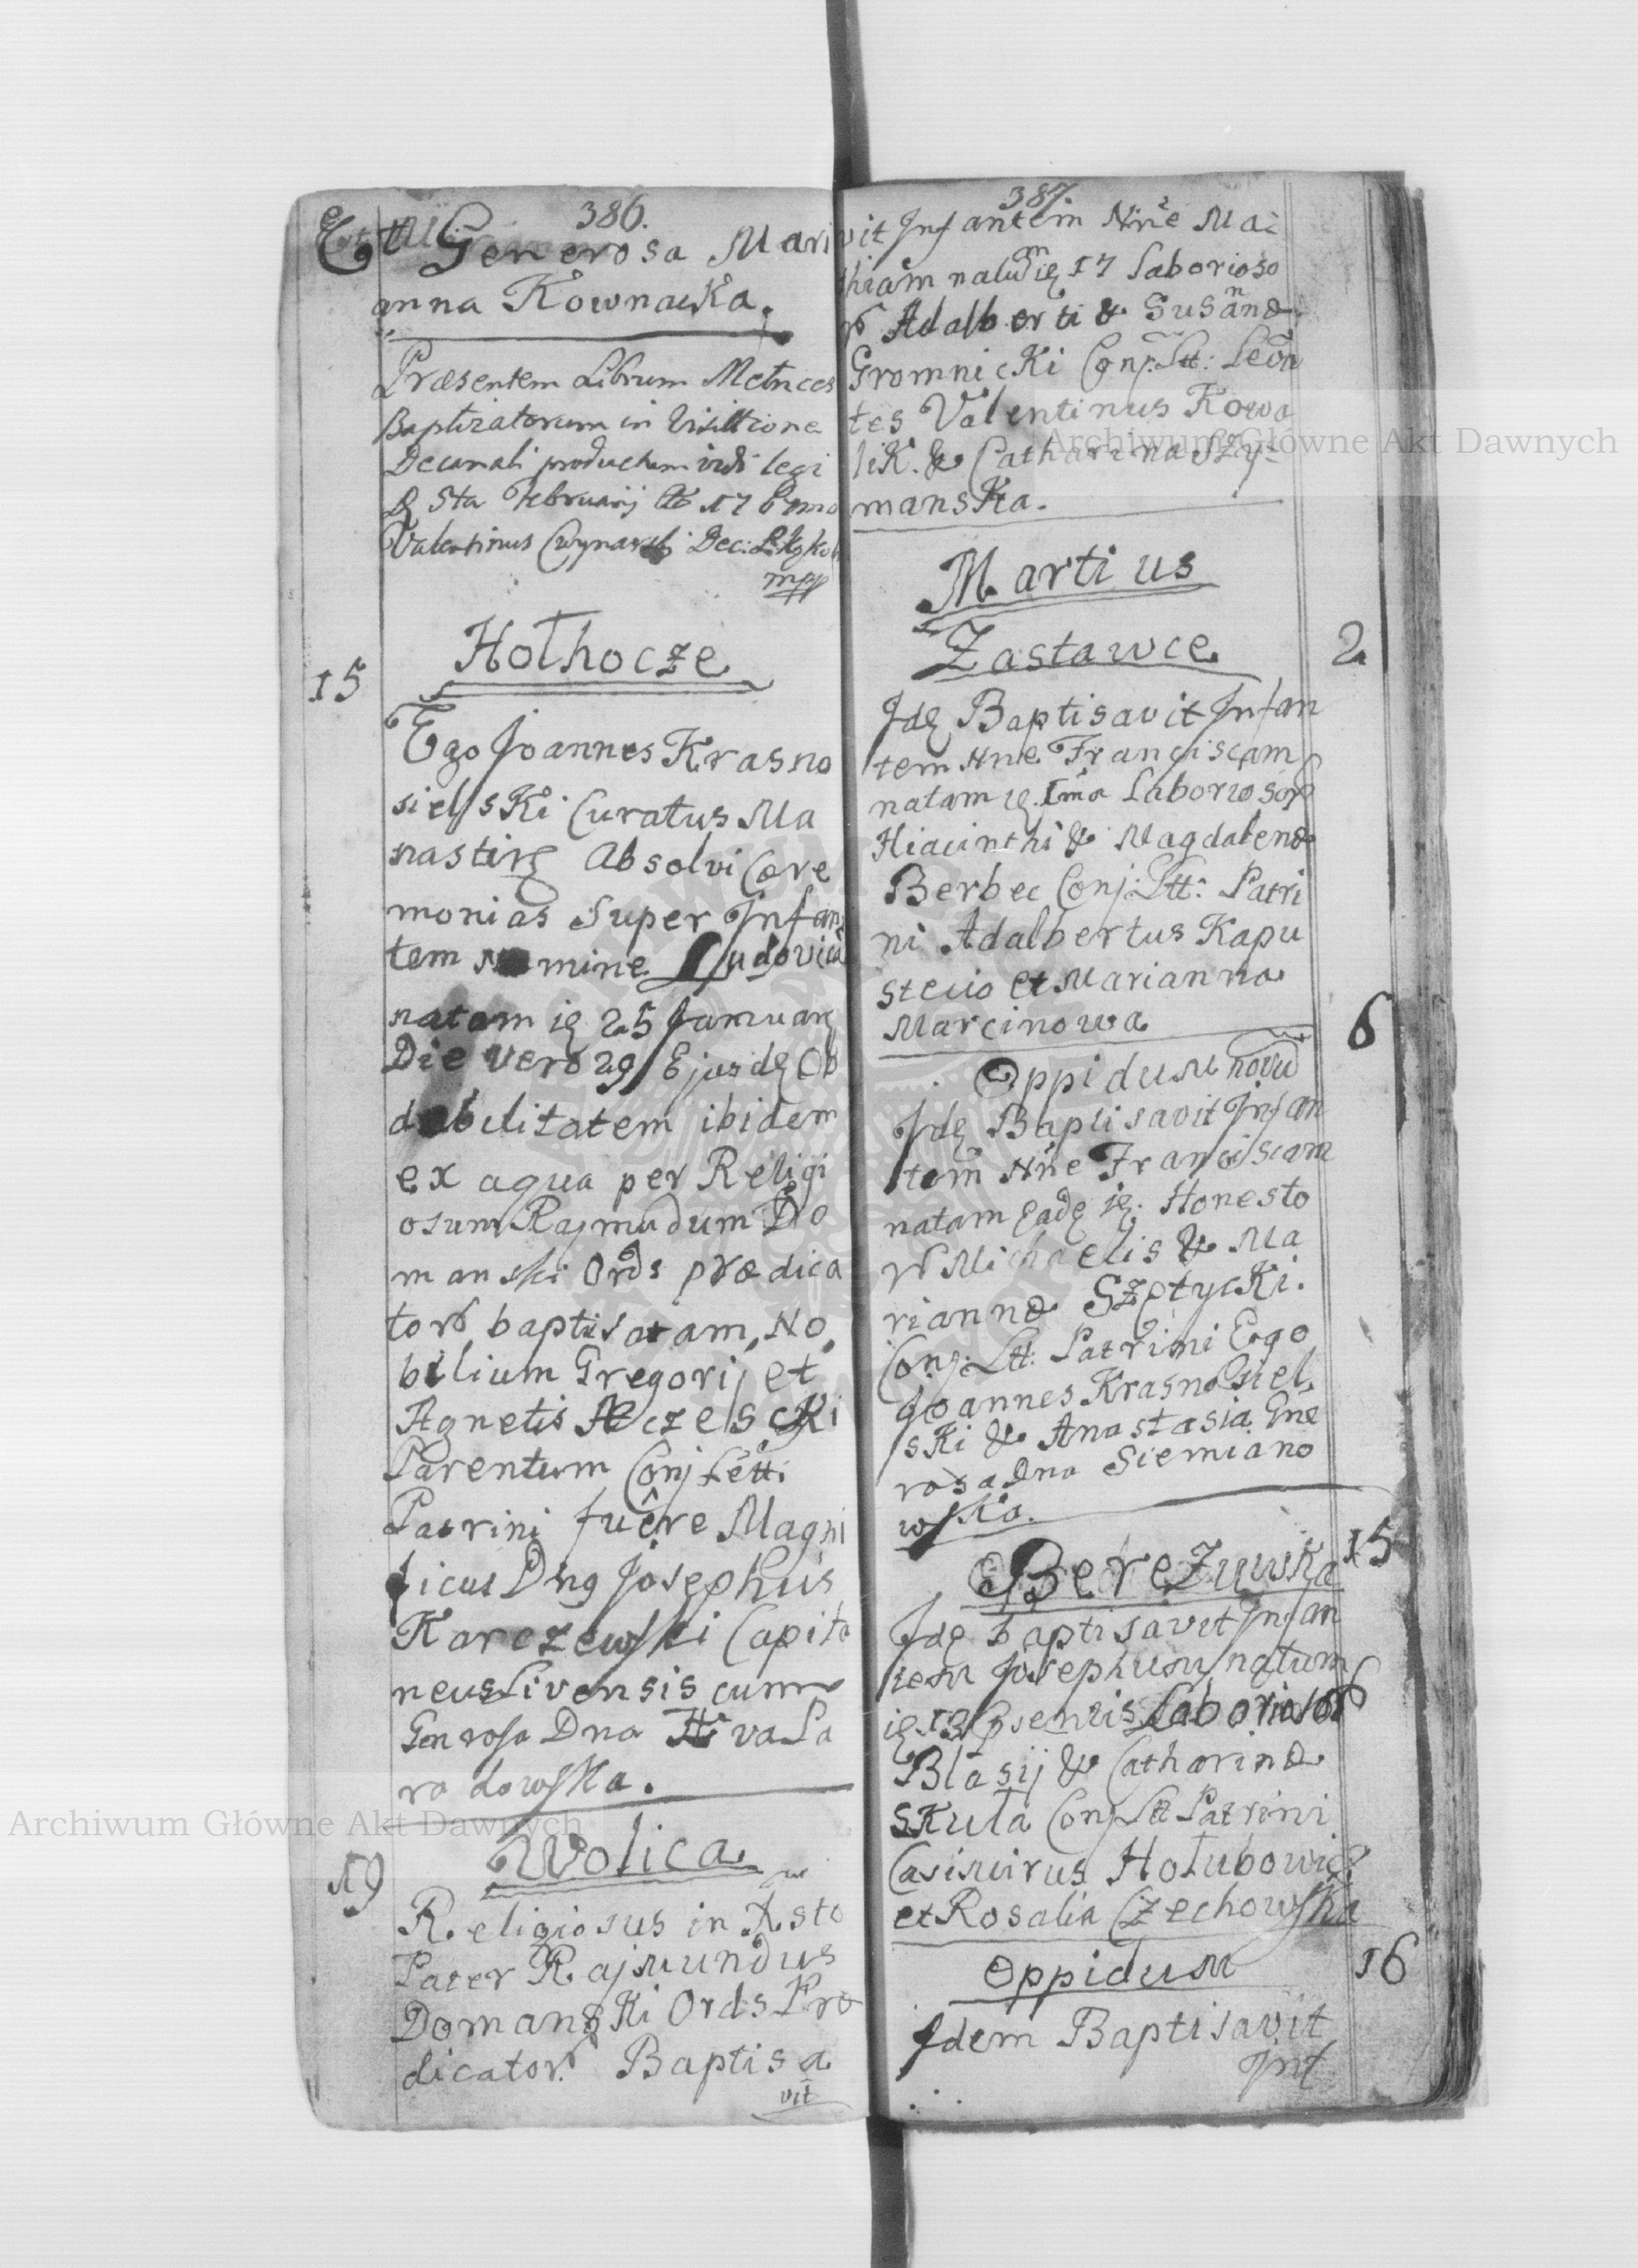 386.
Et Generosa Mari
anna Kownacka.
Præsentem Librum Metrices
Baptizatorum in Visittione
Decanali productum vidi legi
D 5ta Februarij
Valentinus Dec:
mpp
Hołhocze
15
Ego Joannes Krasno
sielski Curatus Ma
nastirz Absolvi Cære
monias Super Infan
tem Nomine Ludovica
natam ię 25 Januarę
Die Vero 29 Ejusdę Ob
debilitatem ibidem
ex aqua per Religi
osum Rajmudum Do
manski Ords prædica
torȣ baptisatam, No
bilium Gregorij et
Agnetis
Parentum Conj Letti
Patrini fuêre Magni
ficus Dnꝯ Josephus
Karczewski Capita
neus Livensis cum
Genrosa Dna Ewa Sa
radowska.
Wolica
19
Religiosus in Xsto
Pater Rajmundus
Domanski Ords Præ
dicator. Baptisa
vit
387.
vit Infantem Nne Ma
thiam natum ię 17 Laborioso
rȣ Adalberti & Susannæ
Gromnicki Conj: Ltt: Leva
tes Valentinus Kowa
lik. & Catharina Szy
manska.
Martius
Zastawce
2
Idę Baptisavit Infan
tem Nne Franciscam
natam ię. Ima Laboriosorȣ
Hiacinthi & Magdalenæ
Berbec Conj: Ltt: Patri
ni Adalbertus Kapu
stecio et Marianna
Marcinowa
Oppidum novu
6
Idę Baptisavit Infan
tem Nne Franciscam
natam Eadę ię. Honesto
rȣ Michaelis & Ma
riannæ Szeptycki.
Conj: Ltt: Patrini Ego
Joannes Krasnosiel
ski & Anastasia Gne
rosa Dna Siemiano
wska.
Berezuwka
15
Idę baptisavit Infan
tem Josephum natum
ię. 13 Psentis Laboriosorȣ
Blasij & Catharinæ
Skuła Conj Ltt Patrini
Casimirus Hołubowicz
et Rosalia Czechowska
Oppidum
16
Idem Baptisavit
Int
Archiwum Główne Akt Dawnych
Archiwum Główne Akt Dawnych